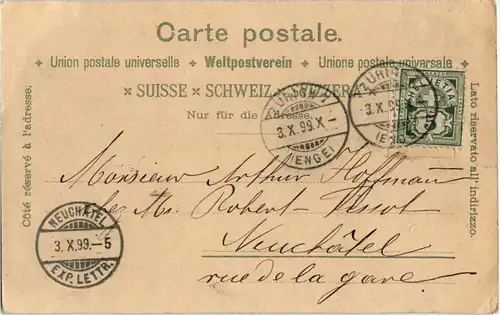 Carte postale.
Union postale universelle Weltpostverein Unione postale universale
SUISSE SCHWEIZ SVIZZERA
Nur für die Adresse.
Côté réservé à l'adresse.
Lato riservato all'indirizzo.
ZÜRICH
3.X.99.X-
(ENGE)
ZÜRICH
3.X.99
(ENGE)
HELVETIA
Monsieur Arthur Hoffmann
chez Mr. Robert
Neuchâtel
rue de la gare
NEUCHÂTEL
3.X.99.-5
EXP. LETTR.